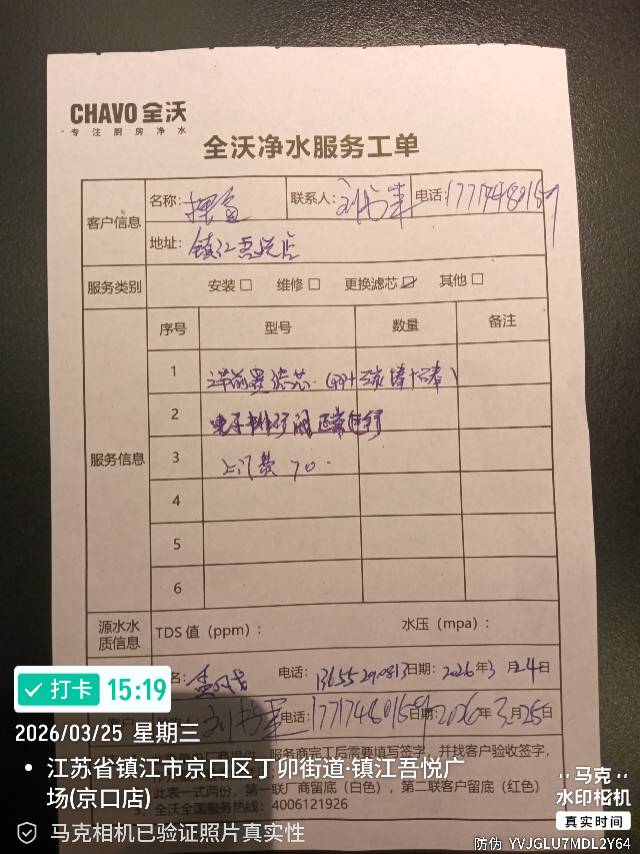 CHAVO 全沃
专注厨房净水
全沃净水服务工单
客户信息
名称:
联系人: 电话: 17717480159
地址: 镇江吾悦店
服务类别 安装 □ 维修 □ 更换滤芯 ☑ 其他 □
服务信息
序号 型号 数量 备注
1
2 正常
3 上门费 70.
4
5
6
源水水质信息 TDS 值（ppm）： 水压（mpa）：
名: 电话: 13655290813 日期: 2026年3月24日
电话: 17717480159 日期: 2026年3月25日
服务商完工后需要填写签字，并找客户验收签字，
此表一式两份，第一联厂商留底（白色），第二联客户留底（红色）
5、全沃全国服务热线：4006121926
打卡 15:19
2026/03/25 星期三
江苏省镇江市京口区丁卯街道·镇江吾悦广
场(京口店)
马克相机已验证照片真实性
马克
水印相机
真实时间
防伪 YVJGLU7MDL2Y64